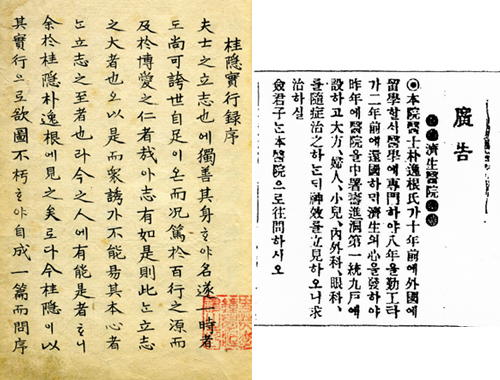 桂隠實行録序
夫士之立志也에獨善其身ᄒᆞ야名遂一時者
도尚可誇世自足이온而况篤於百行之源而
及於博愛之仁者哉아志有如是則此ᄂᆞᆫ立志
之大者也오以是而衆誘가不能易其本心者
ᄂᆞᆫ立志之至者也라今之人에有能是者ᄒᆞ니
余於桂隠朴逸根에見之矣로다今桂隠이以
其實行으로欲圖不朽ᄒᆞ야自成一篇而問序
廣告
濟生醫院
◉本院醫士朴逸根氏가十年前에外國에
留學ᄒᆞᆯᄉᆡ醫學에專門ᄒᆞ야八年을勤工타
가二年前에還國ᄒᆞ미濟生의心을發ᄒᆞ야
昨年에醫院을中署壽進洞第一統九戶에
設ᄒᆞ고大方、婦人、小兒、內外科、眼科、
를隨症治之ᄒᆞᄂᆞᆫᄃᆡ神效를立見ᄒᆞ오니求
治ᄒᆞ실
僉君子ᄂᆞᆫ本醫院으로往問ᄒᆞ시오